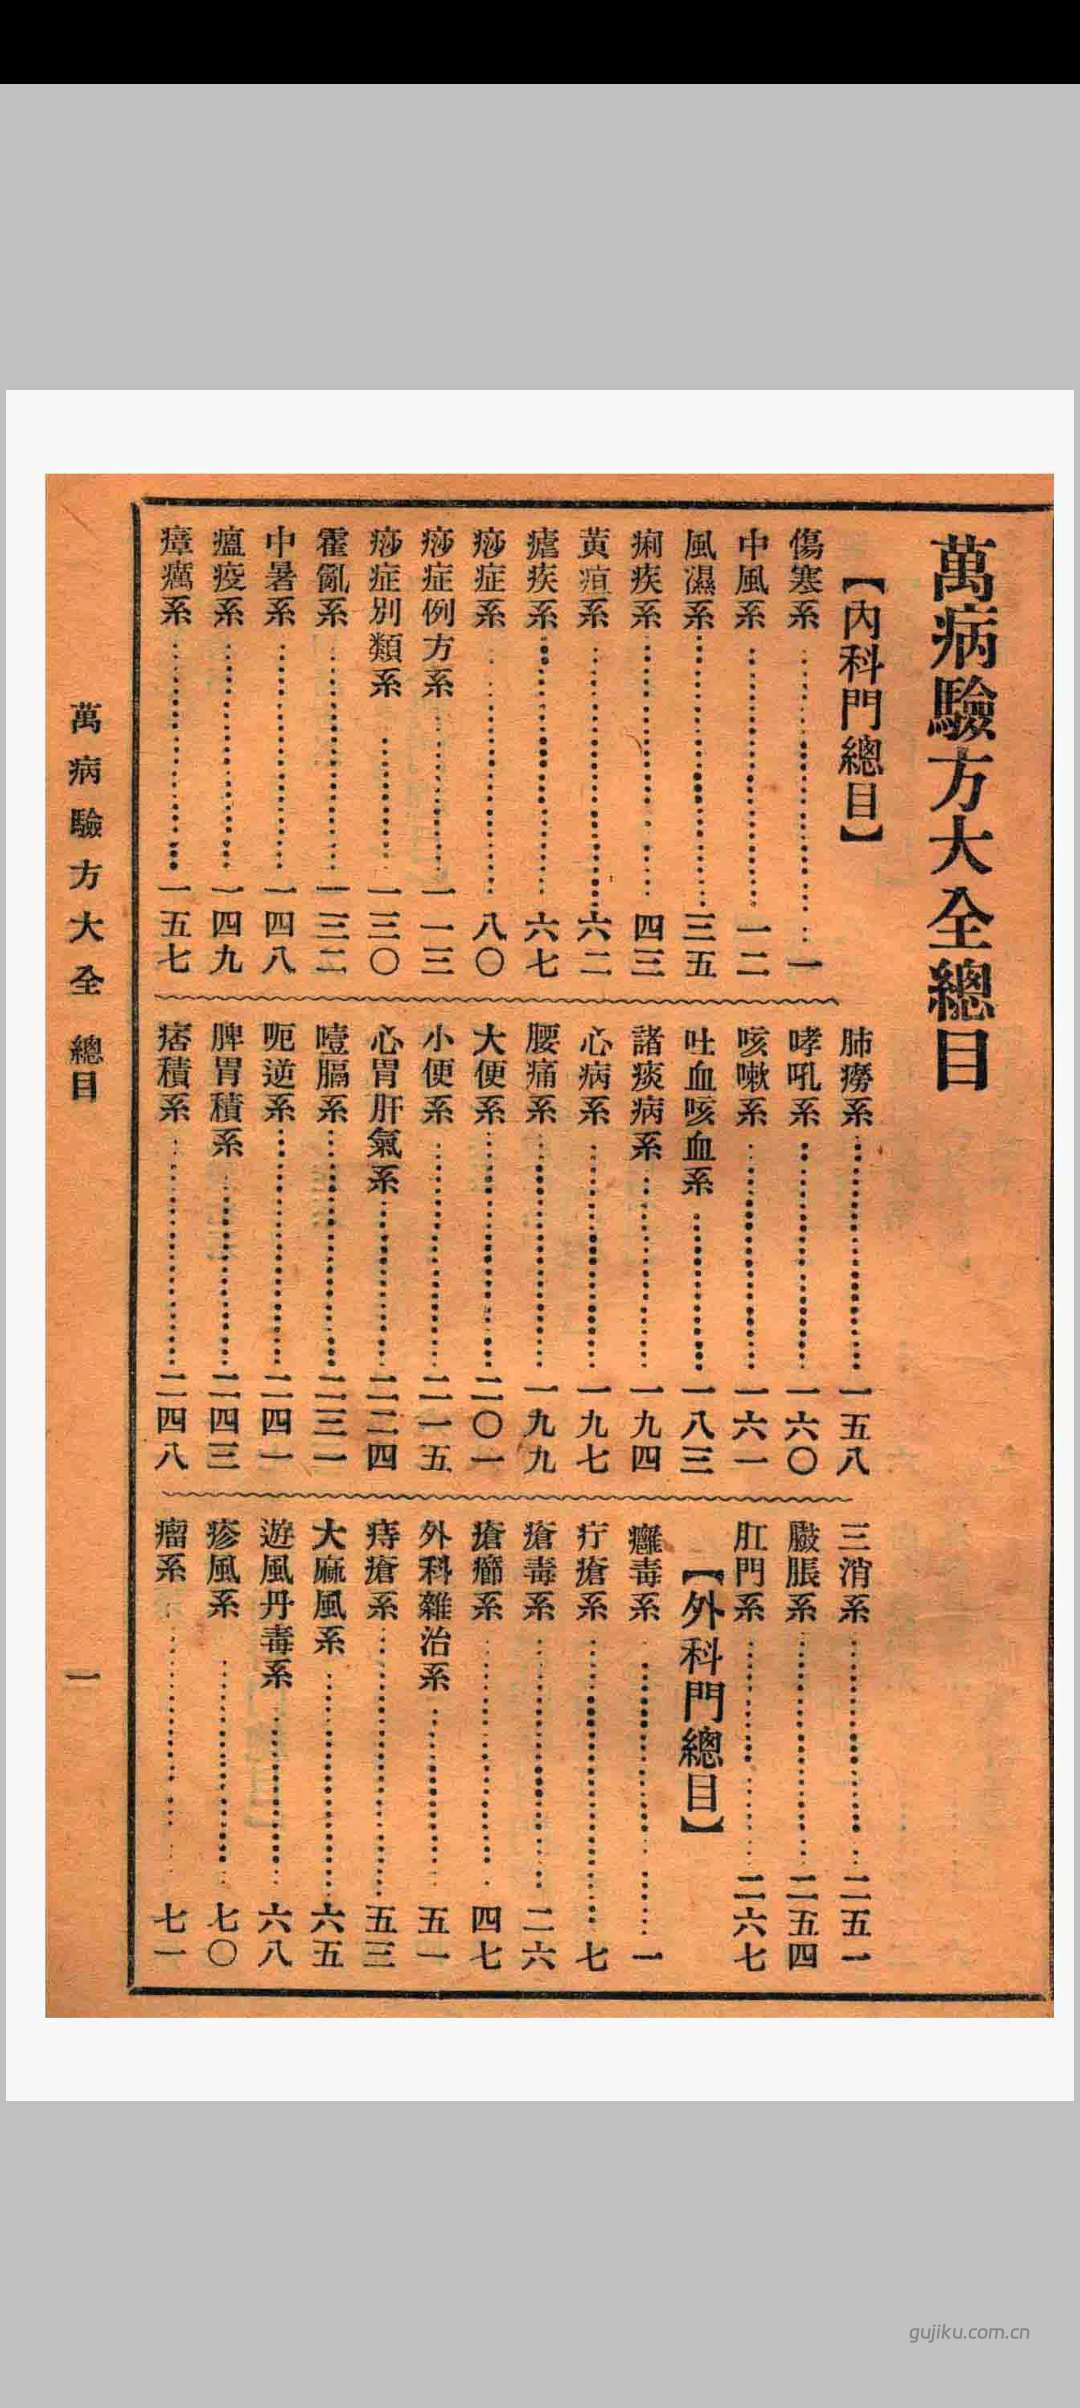 萬病驗方大全總目
【內科門總目】
傷寒系 一
中風系 一二
風濕系 三五
痢疾系 四三
黃疸系 六二
瘧疾系 六七
痧症系 八〇
痧症例方系 一一三
痧症別類系 一三〇
霍亂系 一三二
中暑系 一四八
瘟疫系 一四九
瘴癘系 一五七
肺癆系 一五八
哮吼系 一六〇
咳嗽系 一六一
吐血咳血系 一八三
諸痰病系 一九四
心病系 一九七
腰痛系 一九九
大便系 二〇一
小便系 二一五
心胃肝氣系 二二四
噎膈系 二三一
呃逆系 二四一
脾胃積系 二四三
痞積系 二四八
三消系 二五一
臌脹系 二五四
肛門系 二六七
【外科門總目】
癰毒系 一
疔瘡系 七
瘡毒系 二六
瘡癤系 四七
外科雜治系 五一
痔瘡系 五三
大麻風系 六五
遊風丹毒系 六八
疹風系 七〇
瘤系 七一
萬病驗方大全 總目
一
gujiku.com.cn